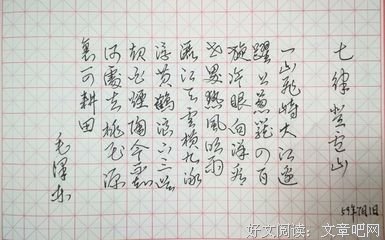 七律 登庐山
一山飞峙大江边
跃上葱茏四百
旋冷眼向洋看
世界热风吹雨
洒江天云横九派
浮黄鹤浪下三吴
起白烟陶令不知
何处去桃花源
里可耕田
毛泽东
59年7月1日
好文阅读：文章吧网